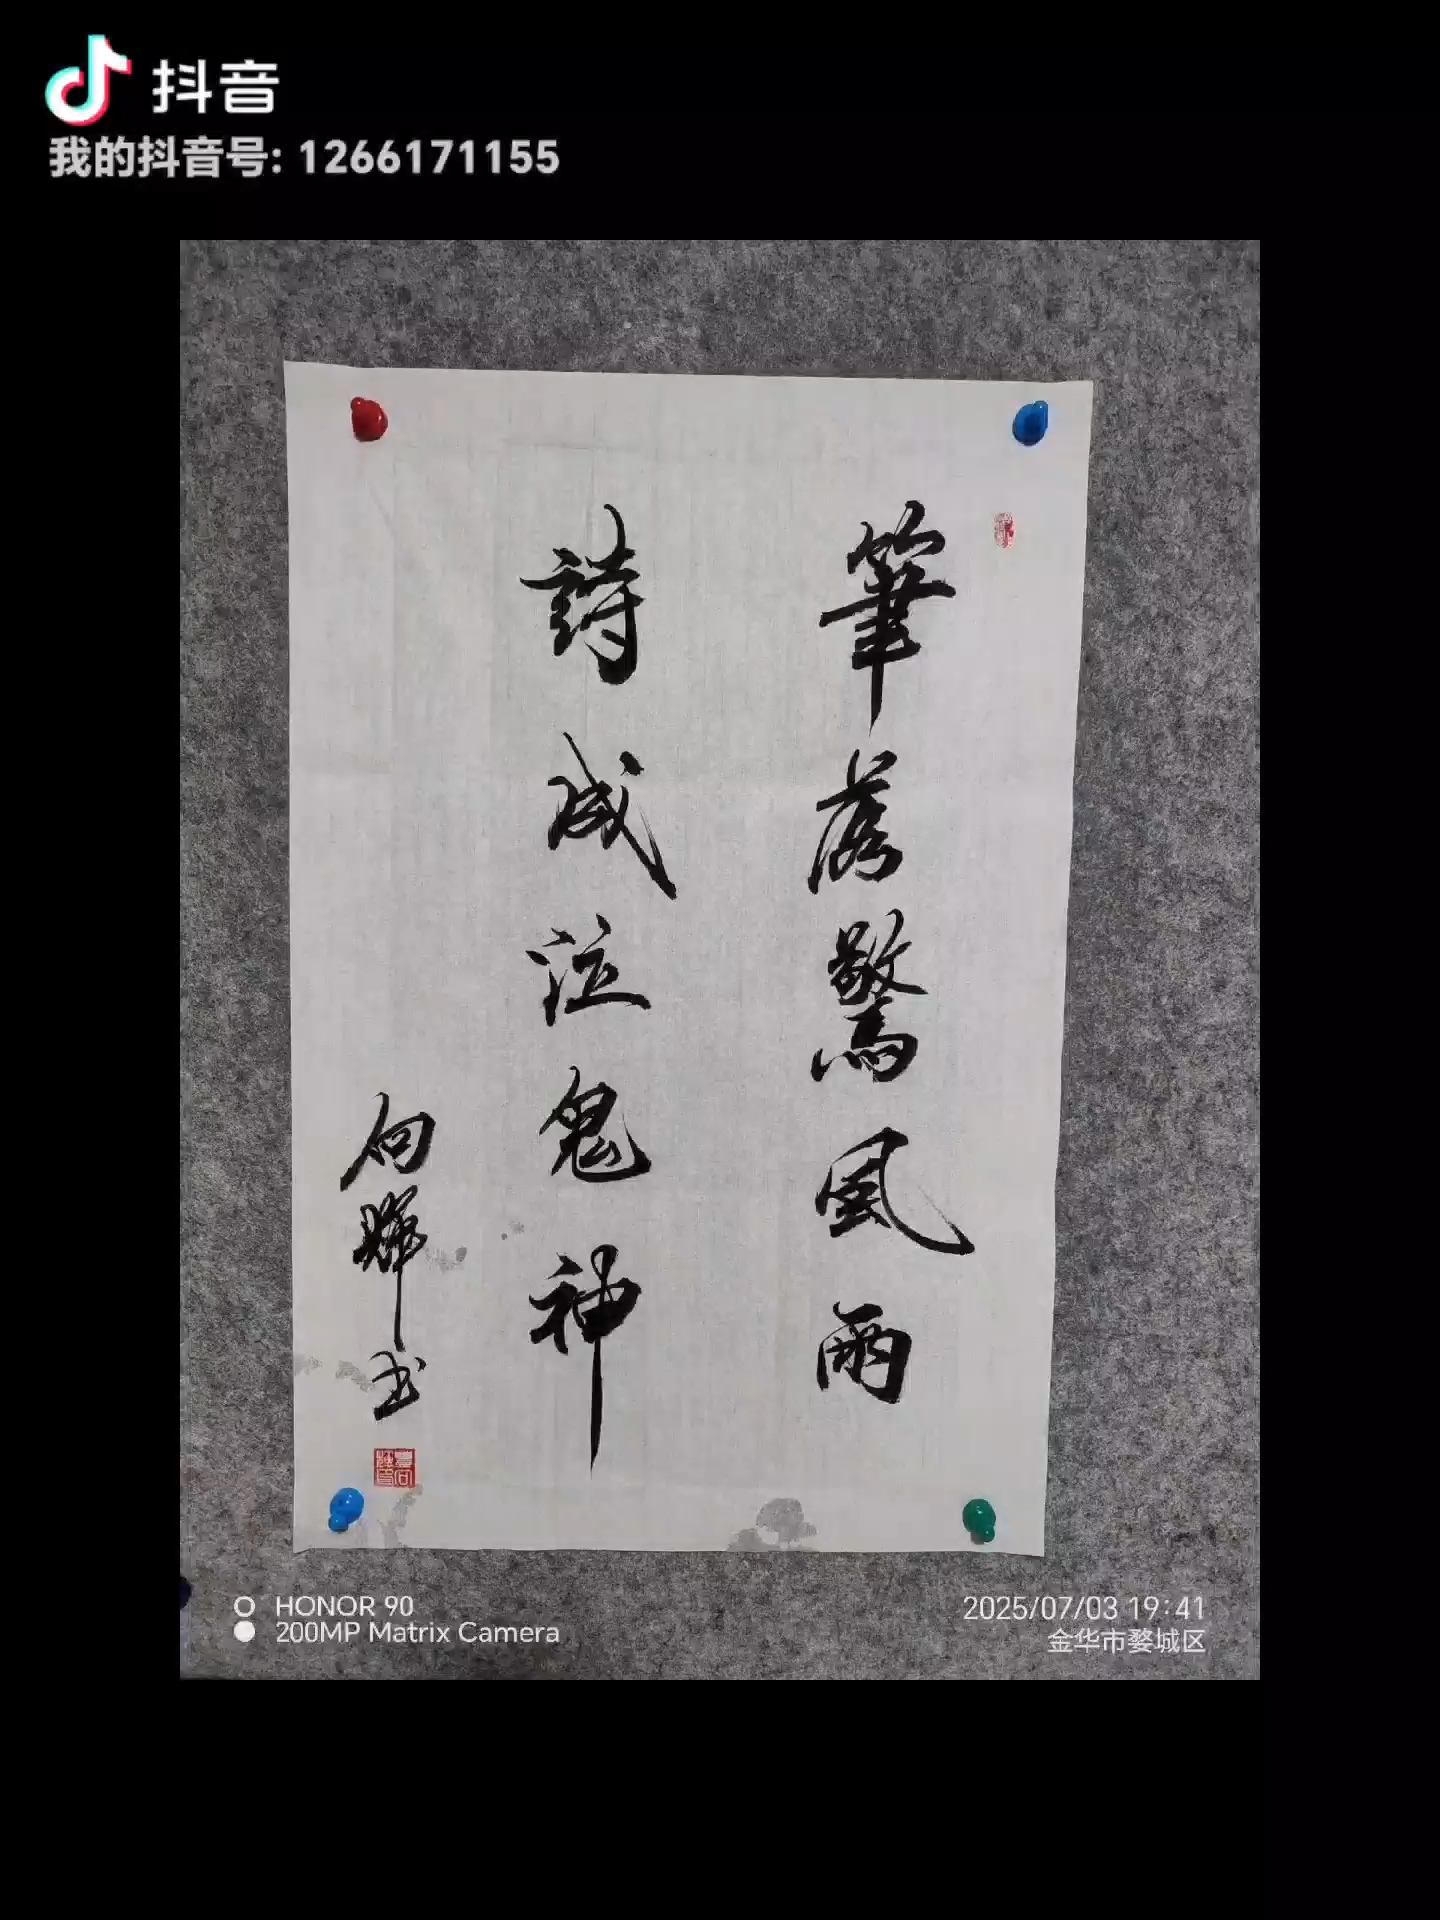 抖音
我的抖音号: 1266171155
筆落驚風雨
詩成泣鬼神
向輝书
HONOR 90
200MP Matrix Camera
2025/07/03 19:41
金华市婺城区